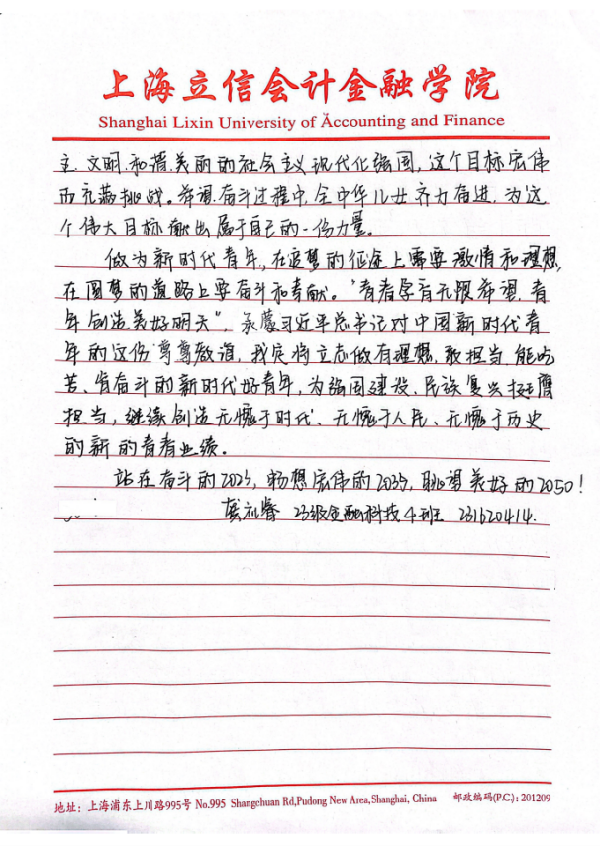 上海立信会计金融学院
Shanghai Lixin University of Accounting and Finance
主、文明、和谐、美丽的社会主义现代化强国，这个目标宏伟
而充满挑战。希望奋斗过程中，全中华儿女齐力奋进，为这
个伟大目标献出属于自己的一份力量。
做为新时代青年，在追梦的征途上需要激情和理想，
在圆梦的道路上要奋斗和奉献。“青春孕育无限希望，青
年创造美好明天”，承蒙习近平总书记对中国新时代青
年的这份尊尊教诲，我定将立志做有理想、敢担当、能吃
苦、肯奋斗的新时代好青年，为强国建设、民族复兴挺膺
担当，继续创造无愧于时代、无愧于人民、无愧于历史
的新的青春业绩。
站在奋斗的2025，畅想宏伟的2035，眺望美好的2050！
龚礼睿 23级金融科技4班 231620414.
地址：上海浦东上川路995号 No.995 Shangchuan Rd,Pudong New Area,Shanghai, China 邮政编码(P.C.)：201209